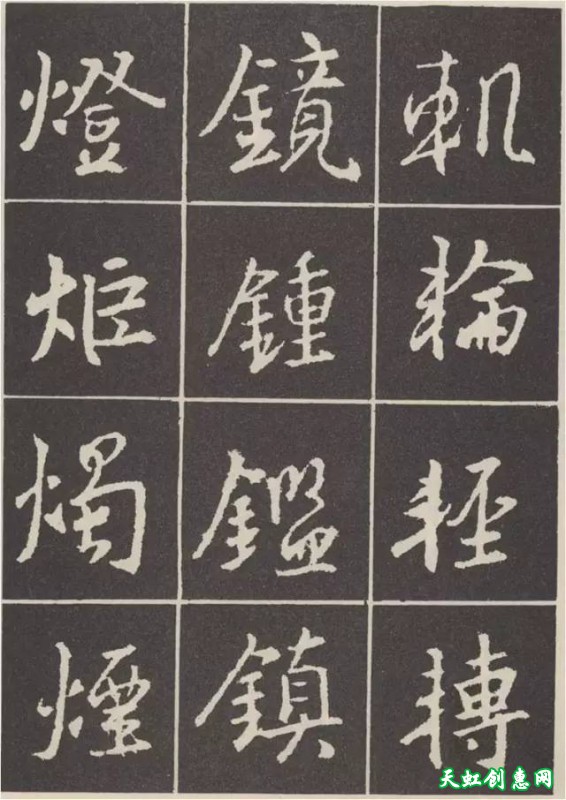 軌輪輕轉
鏡鍾鑑鎮
燈炬燭煙
天虹创惠网